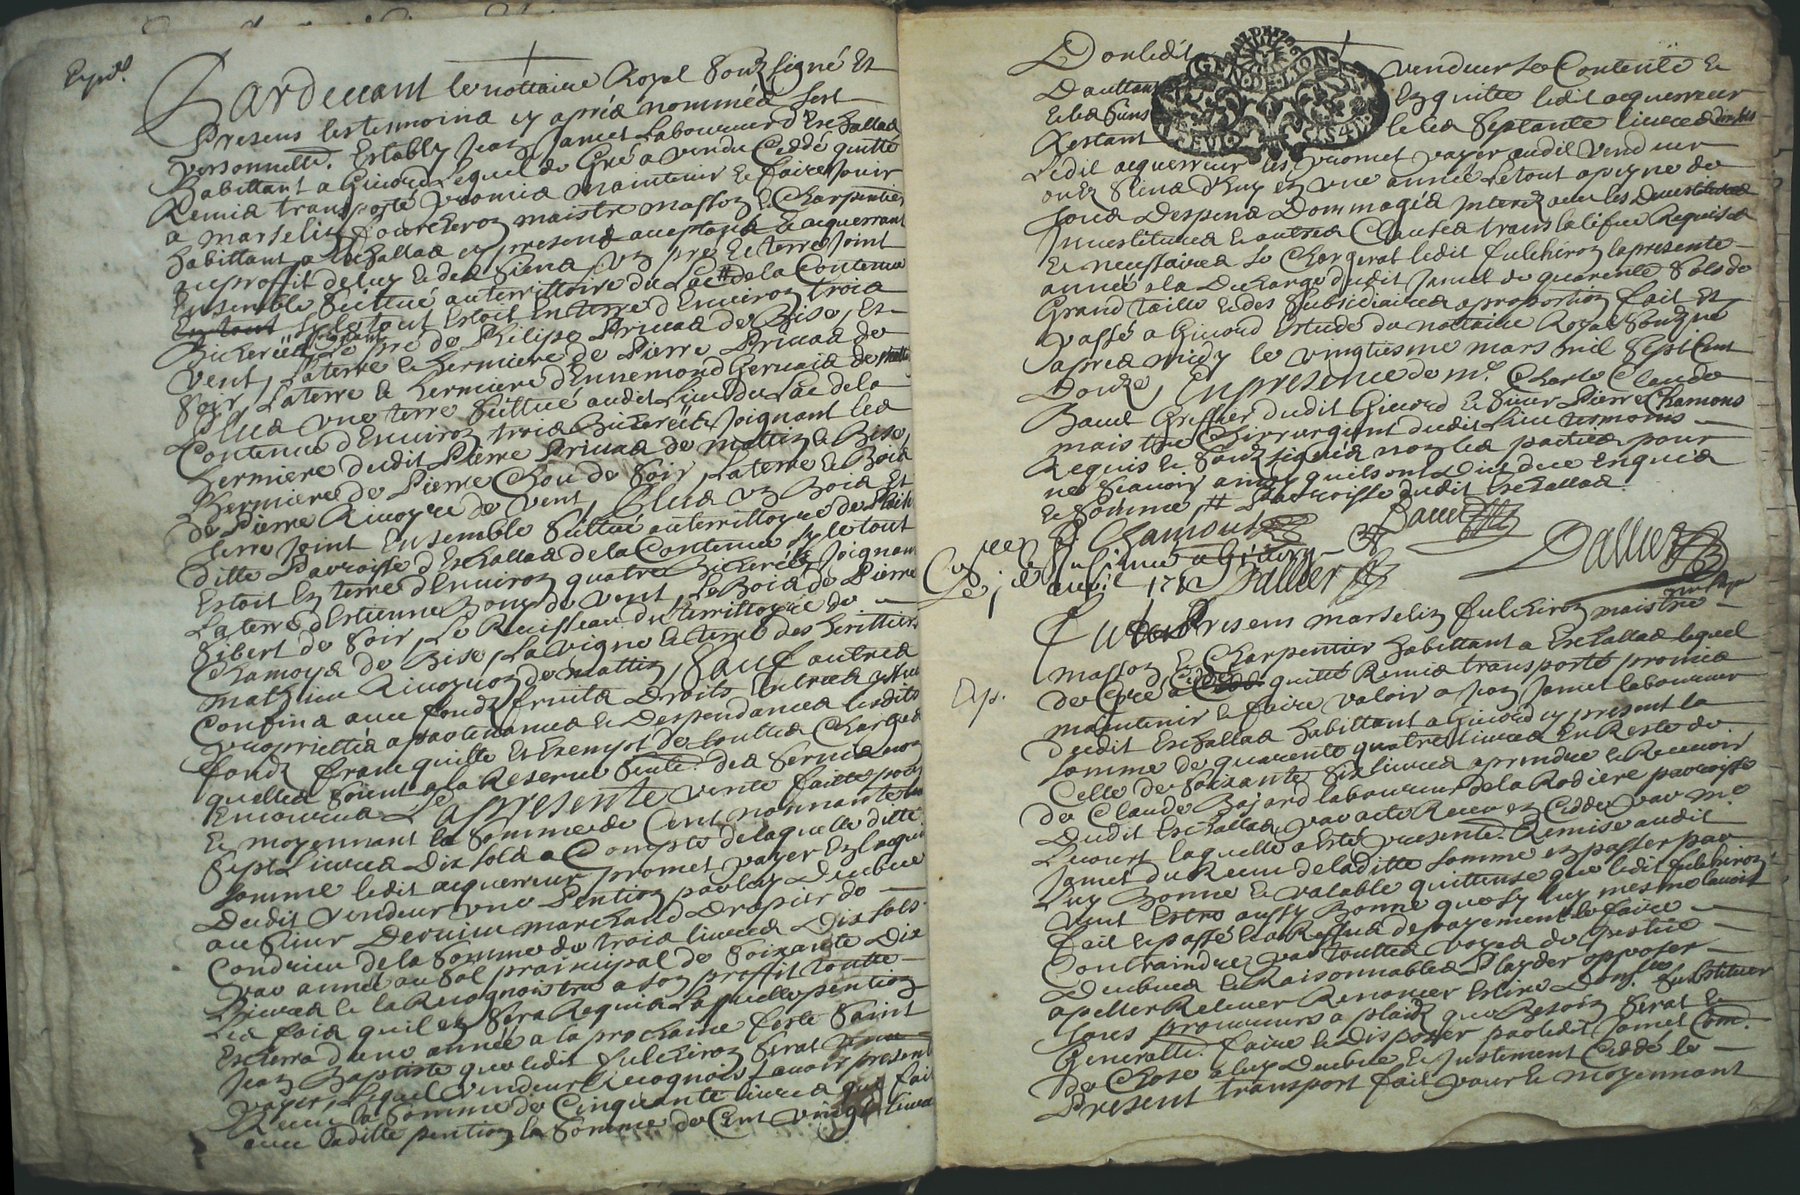 Expdé
Pardevant le nottaire Royal souz signé Et
Presens les tesmoins cy après nommés sest
personnelle. Estably Jean Jamet Laboureur d'Eschallas
habittant a Givord Lequel de Gré a vendu Ceddé quitte
Remis transporte promis maintenir et faire Jouir
a Marselin fourcheron maistre masson & Charpentier
habittant a Eschallas cy present acceptant & acquerrant
au proffit de luy & des siens, un pré & terre Joint
Ensemble sittué au territtoire du Lac # de la Contenue
En tout sy le tout Estoit En terre d'Environ trois
Bicherées Joignant le pré de Philipe Privas de Bise, Et
vent, la terre & hermiere de Pierre Privas de
soir, La terre & hermiere d'Ennemond Gervais de mattin
Plus une terre sittué audit Lieu du Lac de la
Contenue d'Environ trois Bicherées Joignant les
hermiere dudit Pierre Privas de mattin & Bise,
hermiere de Pierre Chou de soir, La terre & Bois
de Pierre Rivoyre de vent, Plus un Bois Et
terre Joint Ensemble sittué au territtoyre de
ditte Parroisse d'Eschallas de la Contenue sy le tout
Estoit En terre d'Environ quatre Bicherées Joignant
La terre d'Estienne Bony de vent, Le Bois de Pierre
Gibert de soir, Le Ruisseau du territtoyre de
Chamoya de Bise, La vigne & terre des heritiers
Mathieu Rivoyron de mattin, sauf autres
Confins avec fondz fruits Droits Entrées yssues
proprietés appartenances & Despendances lesdits
fondz franc quitte Et Exempt de touttes Charges
quelles soient a la Reserve seulle. des servis non
Encourus La presente vente faitte pour
Et moyennant la somme de Cent nonnante
sept Livres Dix sols a Compte de laquelle ditte
somme ledit acquerreur promet payer En l'aquit
Dudit vendeur une Pention par luy Deubue
au sieur Dervieu marchand Drapier de
Condrieu de la somme de trois livres Dix sols
par année au sol prainsipal de soixante Dix
Livres & la Recognoistre a son proffit toutte
Les fois qu'il En sera Requis Laquelle pention
Escherra d'une année a la prochaine feste saint
Jean Baptiste que ledit fulchiron serat
payer, Lequel vendeur Recognois avoir present
Receu la somme de Cinquante livres qui fait
avec laditte pention la somme de Cent vingt livres
Dont ledit vendeur se Contente &
Dauttant En quitte ledit acquerreur
& les siens & les septante livres
Restant
Ledit acquerreur les promet payer audit vendeur
ou Es siens d'huy En une année Le tout a peyne de
tous Despens Dommages Interez avec les Devestitures
Investitures & autres Clauses translatifve Requises
& necessaires se Chargerat ledit fulchiron la presente
année a la Descharge dudit Jamet de quarente sols de
Grand taille & des subsidiaires a proportion fait Et
passé a Givord Estude du nottaire Royal souzné
apres midy le vingtiesme mars mil sept Cent
Douze, En presence de me. Charle Claude
Bauel Greffier dudit Givord & sieur Pierre Chamons
maistre Chirurgient dudit Lieu tesmoins
Requis & souz signés non les parties pour
ne scavoir ainsy quils ont Dit Deue Enquis
& somme # Parroisse dudit Eschallas.
P Chamous Bauel
Dallier
avril 1712 Dallier
Exp.
Present Marselin fulchiron maistre
masson & Charpentier habittant a Eschallas lequel
de Gré a Ceddé quitté Remis transporté promis
maintenir & faire valoir a Jean Jamet laboureur
dudit Eschallas habittant a Givord cy present la
somme de quarente quatre livres En Reste de
Celle de soixante six livres a prendre & Recevoir
de Claude Bajard laboureur de la Rodiere parroisse
Dudit Eschallas par acte Receu En Cedde par me.
Levort laquelle a Esté presente. Remise audit
Jamet du Receu de laditte somme En passer par
Luy Bonne & valable quittense que ledit fulchiron
veut Estre aussy Bonne que sy luy mesme lavoit
fait & passé & a Reffus de payement le faire
Contraindre par touttes voyes de Justice
Deubues & Raisonnables Playder opposer
apeller Relever Renoncer Eslire Domle. substituer
tous procureurs a plaid que Besoin serat &
generalle. faire & Disposer par ledit Jamet Com.
de Chose a luy Deubue & Justement Ceddé le
Present transport fait pour & moyennant